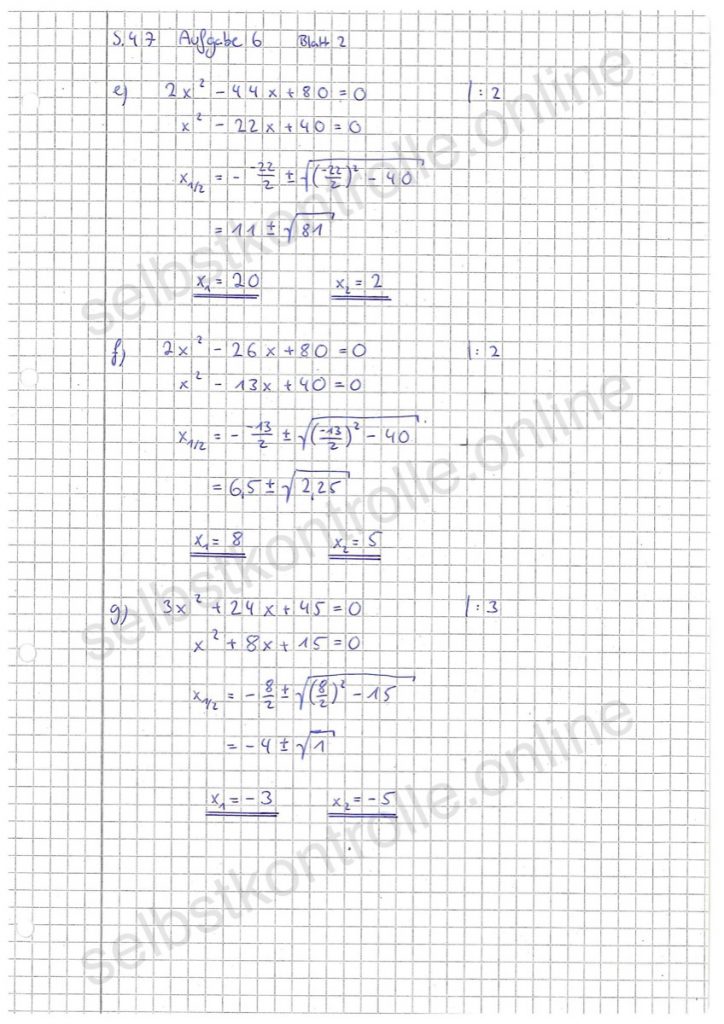 S.47 Aufgabe 6 Blatt 2
e) 2x² - 44x + 80 = 0 |: 2
x² - 22x + 40 = 0
x₁/₂ = - -22/2 ± √((-22/2)² - 40)
= 11 ± √81
x₁ = 20 x₂ = 2
f) 2x² - 26x + 80 = 0 |: 2
x² - 13x + 40 = 0
x₁/₂ = - -13/2 ± √((-13/2)² - 40)
= 6,5 ± √2,25
x₁ = 8 x₂ = 5
g) 3x² + 24x + 45 = 0 |: 3
x² + 8x + 15 = 0
x₁/₂ = - 8/2 ± √((8/2)² - 15)
= -4 ± √1
x₁ = -3 x₂ = -5
selbstkontrolle.online
selbstkontrolle.online
selbstkontrolle.online